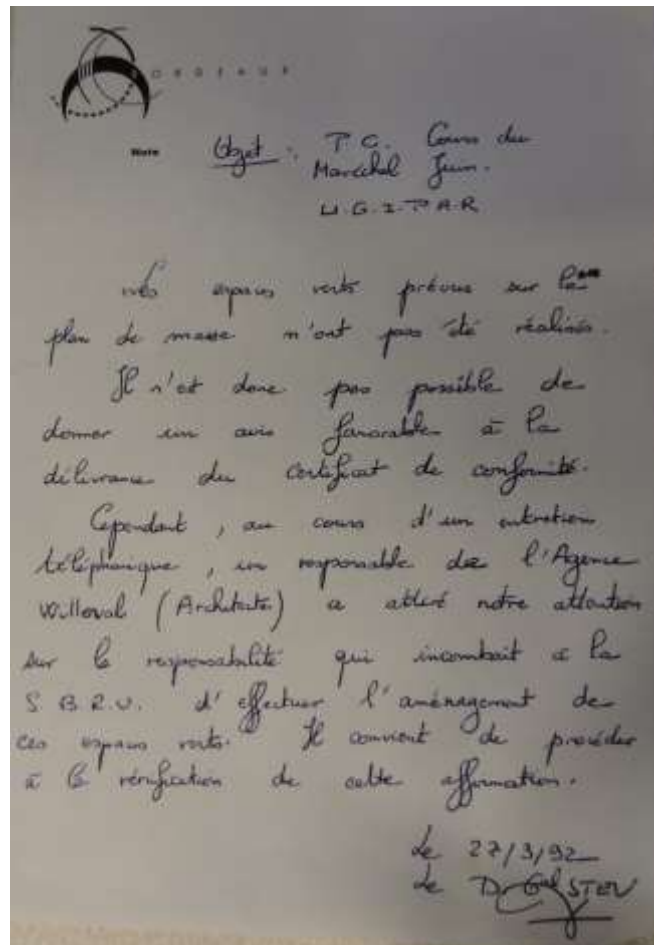 BORDEAUX
Note
Objet : P.C. Cours du
Maréchal Juin.
U.G.I.P.A.R
Les espaces verts prévus sur le
plan de masse n'ont pas été réalisés.
Il n'est donc pas possible de
donner un avis favorable à la
délivrance du Certificat de conformité.
Cependant, au cours d'un entretien
téléphonique, un responsable de l'Agence
Willerval (Architecte) a attiré notre attention
sur la responsabilité qui incombait à la
S.B.R.U. d'effectuer l'aménagement de
ces espaces verts. Il convient de procéder
à la vérification de cette affirmation.
Le 27/3/92
Le D. Gal STEV